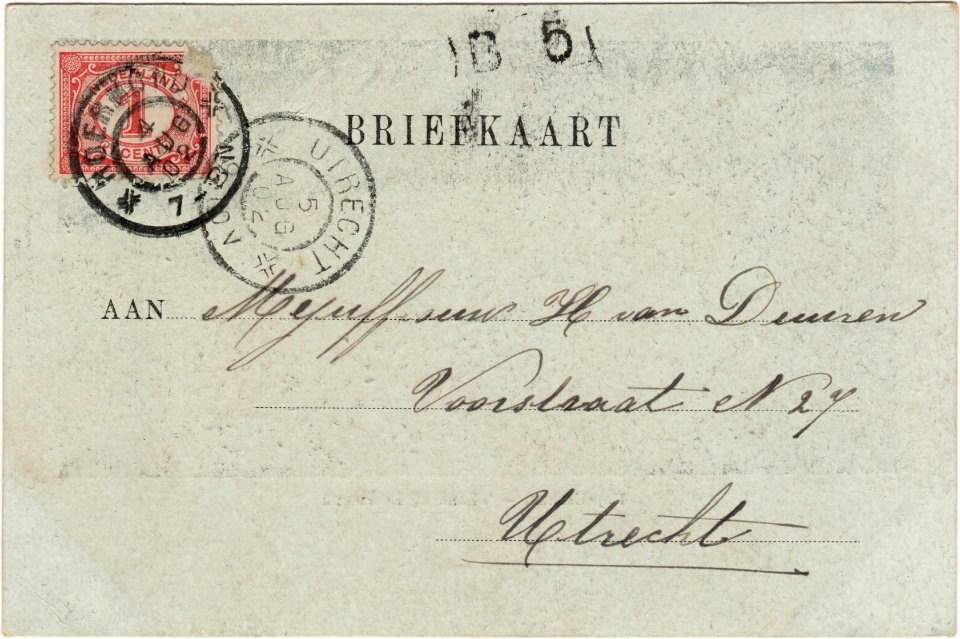 B 5
NEDERLAND
1
CENT
4 AUG 02
7-8N
UTRECHT
5 AUG 02
BRIEFKAART
AAN Mejuffrouw H van Duuren
Voorstraat N 27
Utrecht